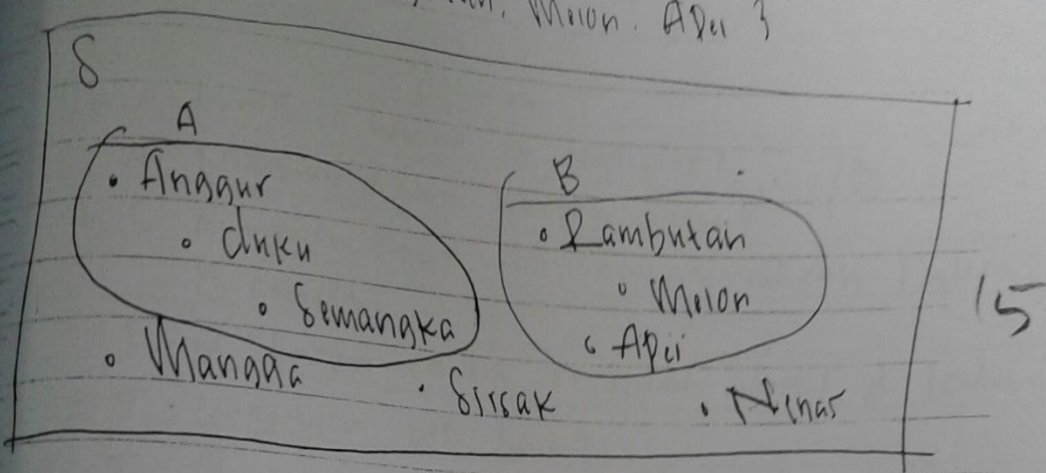 Melon. Apel }
S
A
• Anggur
• duku
• Semangka
B
• Rambutan
• Melon
• Apel
15
• Mangga
• Sirsak
• Nenas